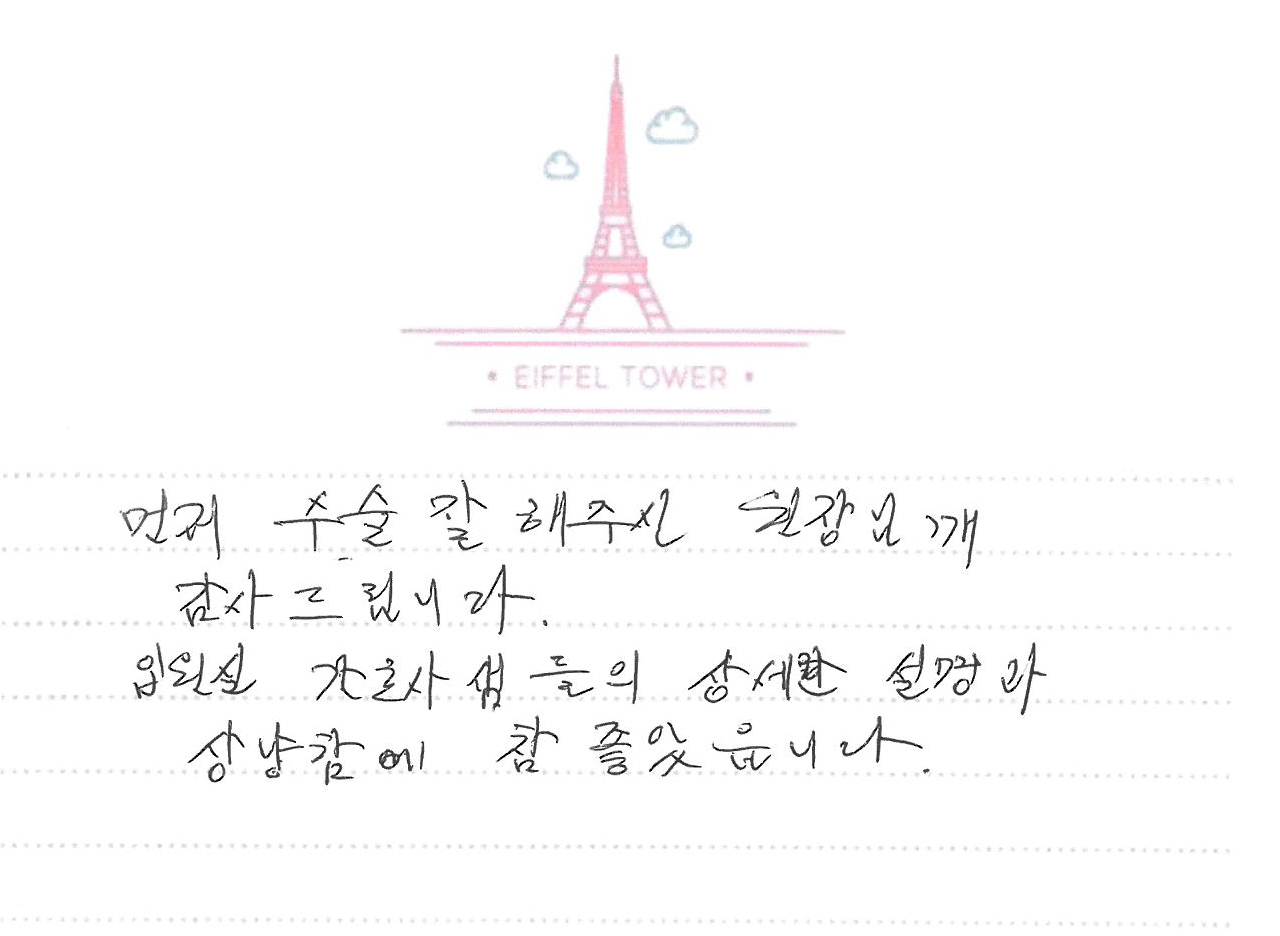 • EIFFEL TOWER •
먼저 수술 잘 해주신 원장님개
감사드립니다.
입원실 간호사 샘들의 상세한 설명과
상냥함에 참 좋았읍니다.